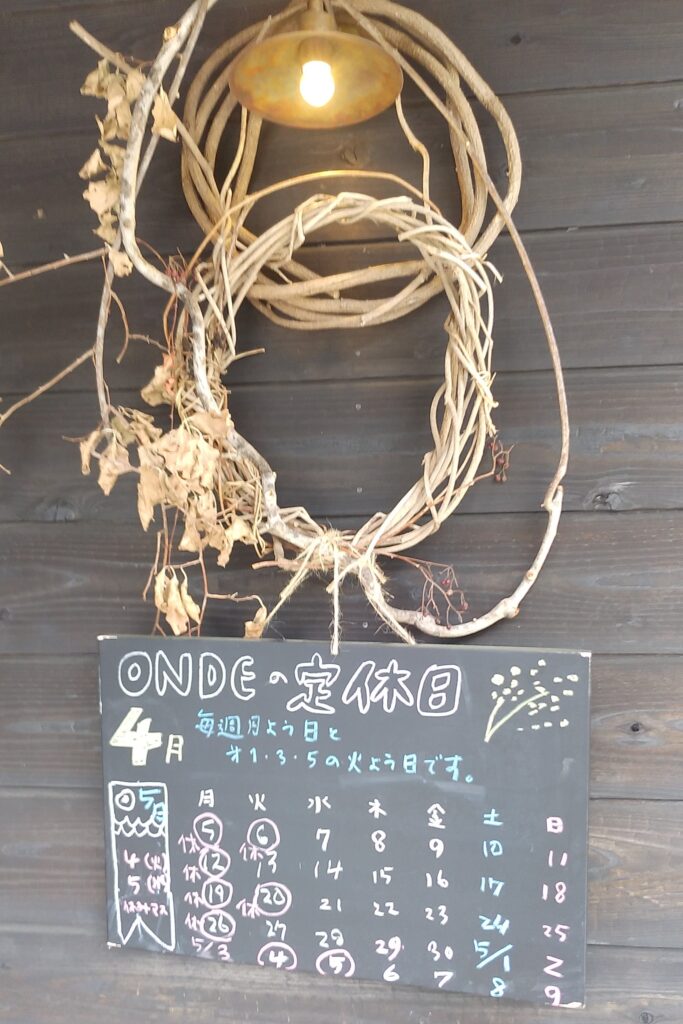 ONDEの定休日
4月
毎週月よう日と
オ1・3・5の火よう日です。
5月
4(火)
5(水)
休みナマス
月 火 水 木 金 土 日
休5 休6 7 8 9 10 11
休12 13 14 15 16 17 18
休19 休20 21 22 23 24 25
休26 27 28 29 30 5/1 2
5/3 4 5 6 7 8 9